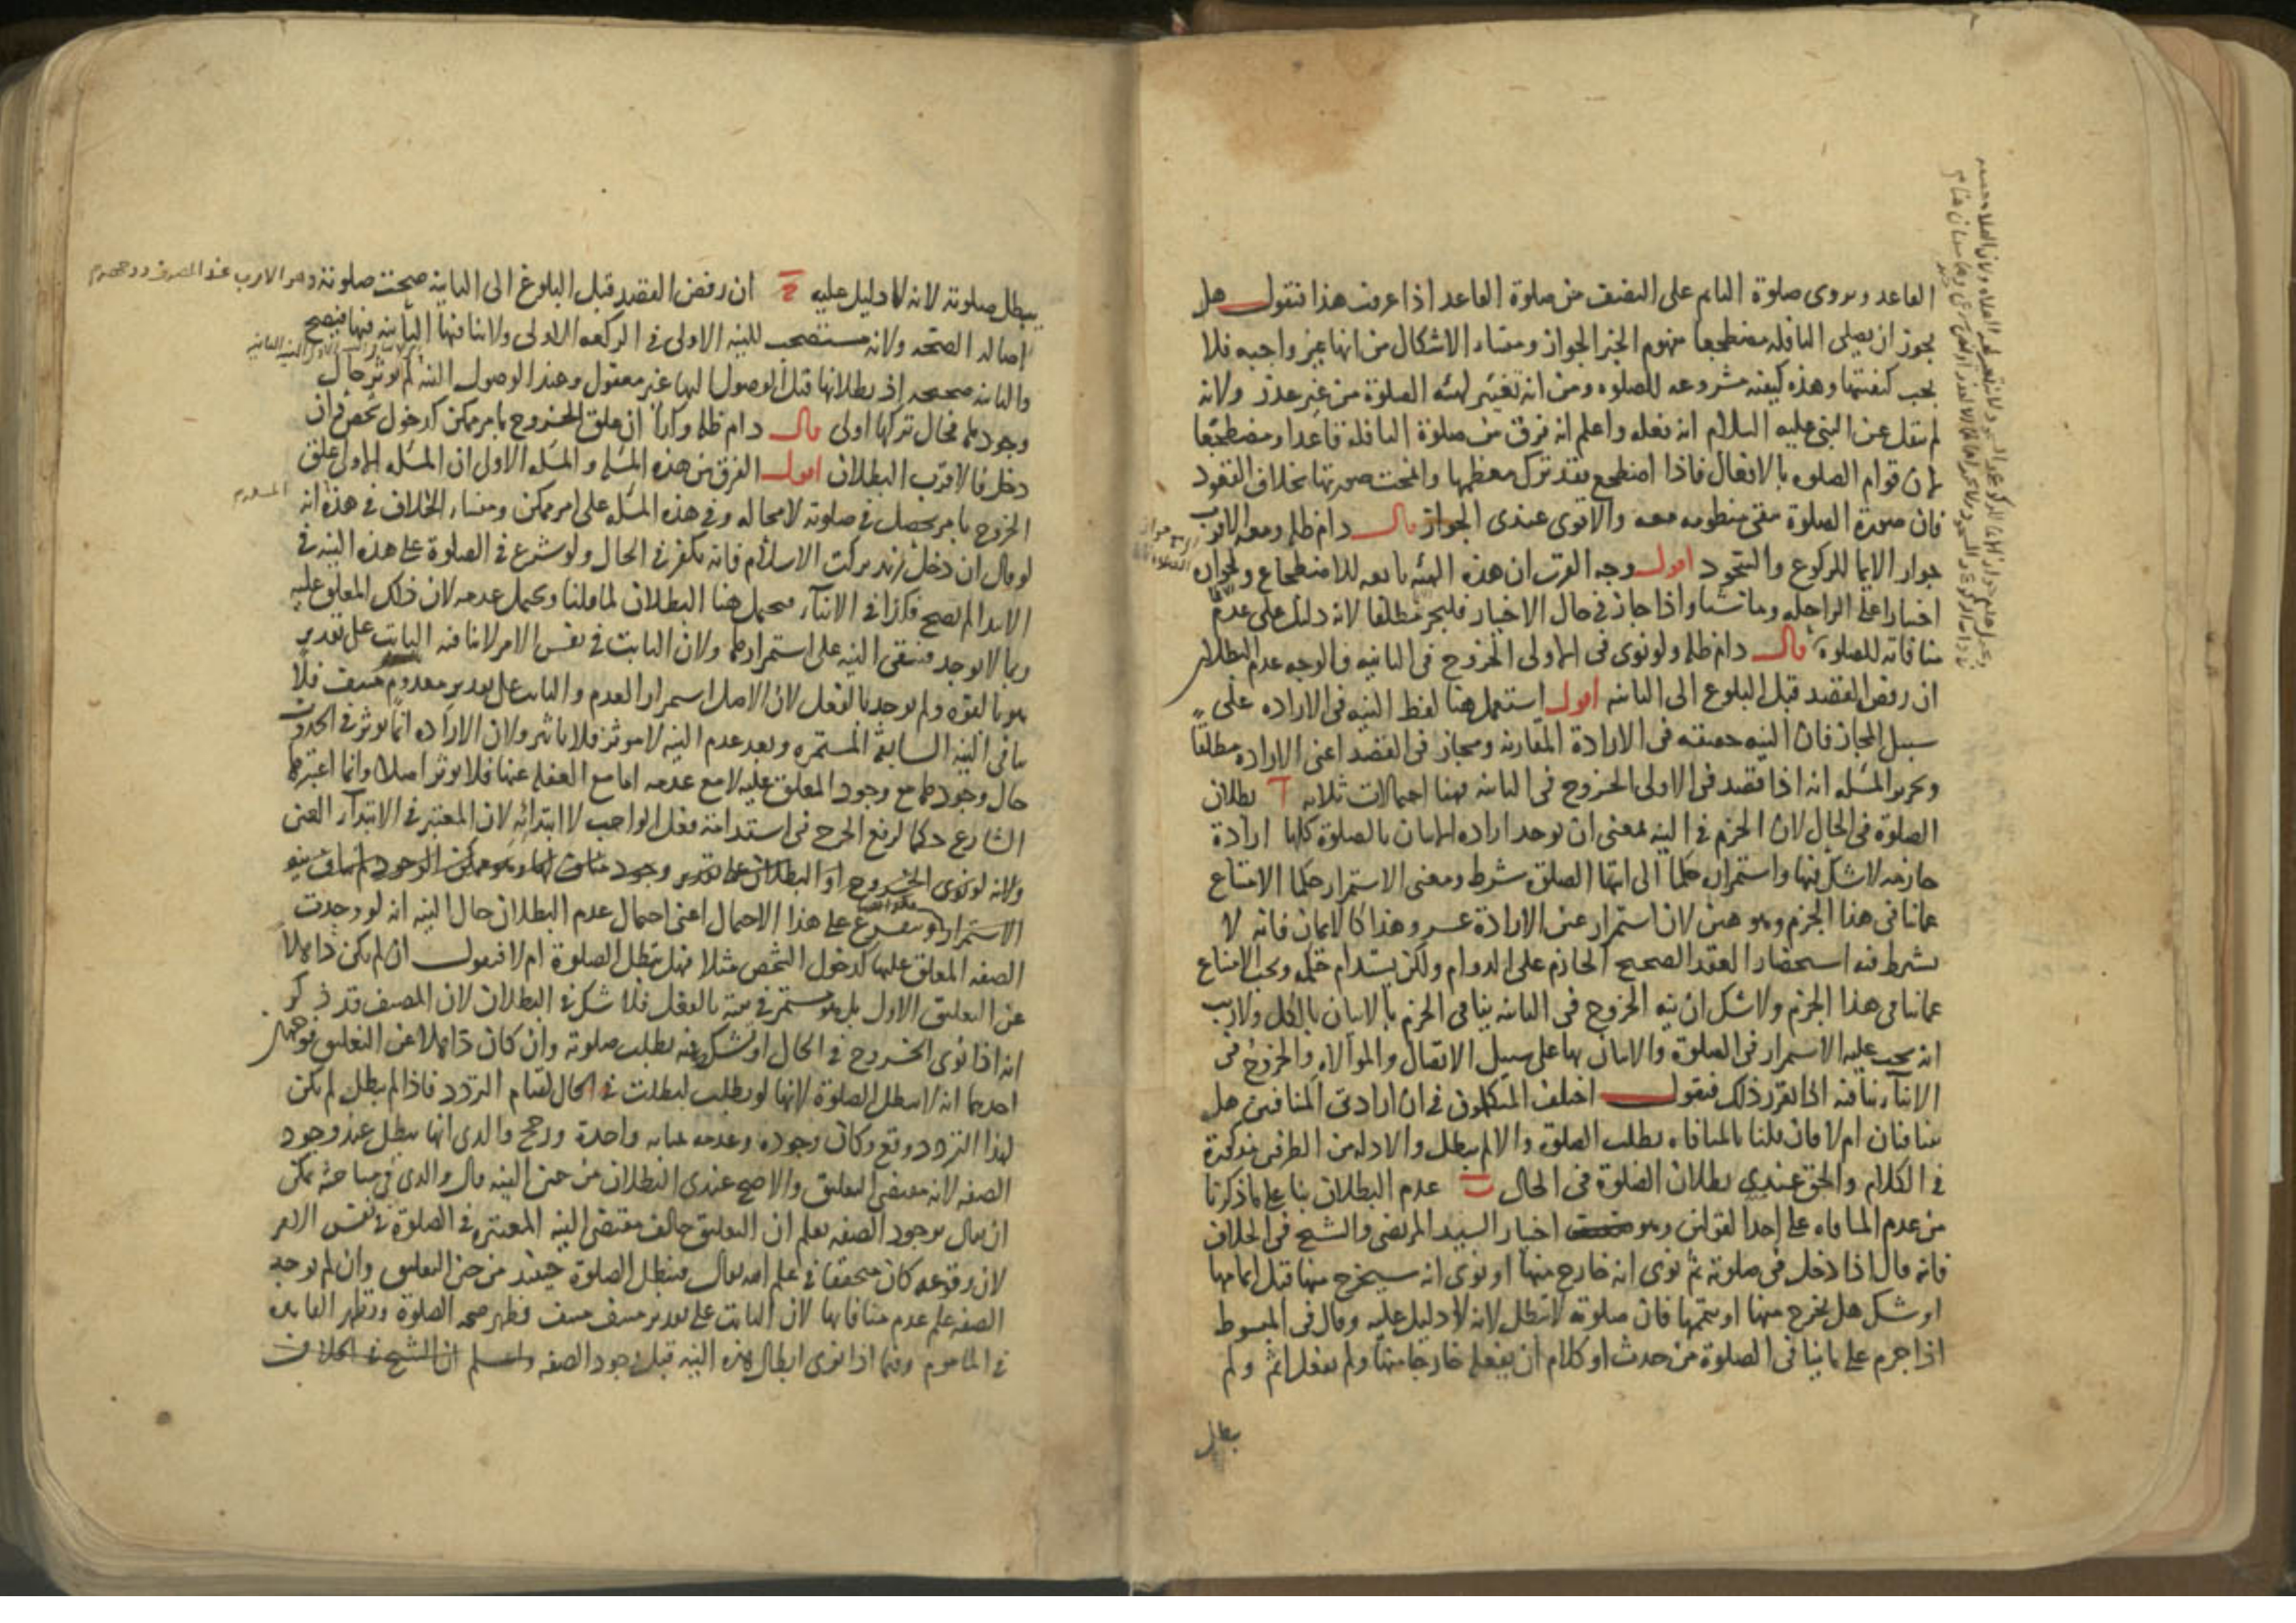 القاعد وروى صلوة النايم على النصف من صلوة القاعد اذا عرفت هذا فنقول هل
يجوز ان يصلى النافله مضطجعا مفهوم الخبر الجواز ومنشاء الاشكال من انها غير واجبه فلا
يجب كيفيتها وهذه كيفيه مشروعه للصلوه ومن انه تغيير لهيئه الصلوة من غير عذر ولانه
لم ينقل عن النبى عليه السلام انه فعله واعلم انه فرق بين صلوة النافلة قاعدا ومضطجعا
لان قوام الصلوه بالافعال فاذا اضطجع فقد ترك معظمها وانمحت صورتها بخلاف القعود
فان صورة الصلوة مبقى منظومه معه والاقوى عندى الجواز قال دام ظله ومعه الاقرب
جواز الايما للركوع والسجود اقول وجه القرب ان هذه الهيئه تابعه للاضطجاع ولجوازه
اختيارا على الراحله وماشيا واذا جاز فى حال الاختيار فليجز مطلقا لانه دليل على عدم
منافاته للصلوة قال دام ظله ولو نوى فى الاولى الخروج فى الثانيه فالوجه عدم البطلان
ان رفض القصد قبل البلوغ الى الثانيه اقول استعمل هنا لفظ النيه فى الاراده على
سبيل المجاز فان النيه حقيقه فى الارادة المقارنه ومجاز فى القصد اعنى الاراده مطلقا
وتحرير المسئله انه اذا قصد فى الاولى الخروج فى الثانيه فهنا احتمالات ثلاثه آ بطلان
الصلوة فى الحال لان الجزم فى النيه بمعنى ان يوجد اراده الاتيان بالصلوة كلها ارادة
جازمه لاشك فيها واستمراره حكما الى انتها الصلوة شرط ومعنى الاستمرار حكما الامتناع
عما نافى هذا الجزم وهو هين لان استمرار عين الارادة عسر وهذا كالايمان فانه لا
يشرط فيه استحضار العقد الصحيح الجازم على الدوام ولكن يستدام حكمه ويجب الامتناع
عما نافى هذا الجزم ولاشك ان نيه الخروج فى الثانيه ينافى الجزم بالاتيان بالكل ولاريب
انه يجب عليه الاستمرار فى الصلوة والاتيان بها على سبيل الاتصال والموالاه والخروج فى
الاثناء ينافيه اذا تقرر ذلك فنقول اختلف المتكلمون فى ان ارادتى المتنافيين هل
يتنافيان ام لا فان قلنا بالمنافاه بطلت الصلوة والا لم يبطل والادله من الطرفين مذكورة
فى الكلام والحق عندى بطلان الصلوة فى الحال ب عدم البطلان بنا على ما ذكرنا
من عدم المنافاه على احد القولين وهو اختيار السيد المرتضى والشيخ فى الخلاف
فانه قال اذا دخل فى صلوته ثم نوى انه خارج منها او نوى انه سيخرج منها قبل اتمامها
او شك هل يخرج منها او يتمها فان صلوته لا تبطل لانه لا دليل عليه وقال فى المبسوط
اذا جزم على ما ينافى الصلوة من حدث او كلام ان يفعله خارجا منها ولم يفعل اثم ولم
يبطل
يبطل صلوته لانه لا دليل عليه ج ان رفض القصد قبل البلوغ الى الثانيه صحت صلوته وهو الاقرب عند المصنف
اصاله الصحه ولانه مستصحب للنيه الاولى فى الركعه الاولى ولا منافيها الثانيه فيها فيصح
والثانيه صحيحه اذ بطلانها قبل الوصول اليها غير معقول وعند الوصول النيه لم يوثر حال
وجودها فحال تركها اولى قال دام ظله وكذا ان علق الخروج بامر ممكن كدخول شخص فان
دخل فالاقرب البطلان اقول الفرق بين هذه المسئله والمسئله الاولى ان المسئله الاولى علق
الخروج بامر يحصل فى صلوته لامحاله وفى هذه المسئله على امر ممكن ومنشاء الخلاف فى هذه انه
لو قال ان دخل زيد تركت الاسلام فانه يكفر فى الحال ولو شرع فى الصلوة على هذه النيه فى
الابتدا لم يصح فكذا فى الاثناء فيحتمل هنا البطلان لما قلنا ويحتمل عدمه لان ذلك المعلق عليه
ربما لايوجد فتبقى النيه على استمرارها ولان الثابت فى نفس الامر لا منافيه الثابت على تقدير
هو بالقوه ولم يوجد بالفعل لان الاصل استمرار العدم والثابت على تقدير معدوم منتف فلا
ينافى النيه السابقة المستمره وبعد عدم النيه لا موثر فلا تاثير ولان الاراده انما يوثر فى الحدوث
حال وجودها مع وجود المعلق عليه لا مع عدمه اما مع الغفله عنها فلا يوثر اصلا وانما اعتبرها
الشارع حكما لرفع الحرج فى استدامة فعل الواجب لا ابتدائه لان المعتبر فى الابتداء العين
ولانه لو نوى الخروج او البطلان على تقدير وجود
الاستمرار ويتفرع على هذا الاحتمال اعنى احتمال عدم البطلان حال النيه انه لو وجدت
الصفه المعلق عليها كدخول الشخص مثلا فهل يبطل الصلوة ام لا فنقول ان لم يكن ذاهلا
عن التعليق الاول بل هو مستمر فى نيته بالفعل فلا شك فى البطلان لان المصنف قد ذكر
انه اذا نوى الخروج فى الحال او تشكك فيه بطلت صلوته وان كان ذاهلا عن التعليق فوجهان
احدهما انه لا يبطل الصلوة لانها لو بطلت لبطلت فى الحال لقيام التردد فاذا لم يبطل لم يكن
لهذا التردد وقع وكان وجوده وعدمه بمثابه واحدة ورجح والدى انها يبطل عند وجود
الصفه لانه مقتضى التعليق والاصح عندى البطلان من حين النيه قال والدى فى مباحثه يمكن
ان يقال بوجود الصفه يعلم ان التعليق خالف مقتضى النيه المعتبره فى الصلوة فى نفس الامر
لان وقوعه كان متحققا فى علم الله تعالى فيبطل الصلوة حينئذ من حين التعليق وان لم يوجد
الصفه علم عدم منافاتها لان الثابت على تقدير منتف منتف فظهر صحه الصلوة وتظهر الفايده
فى الماموم وفيما اذا نوى ابطال هذه النيه قبل وجود الصفه واعلم ان الشيخ فى الخلاف